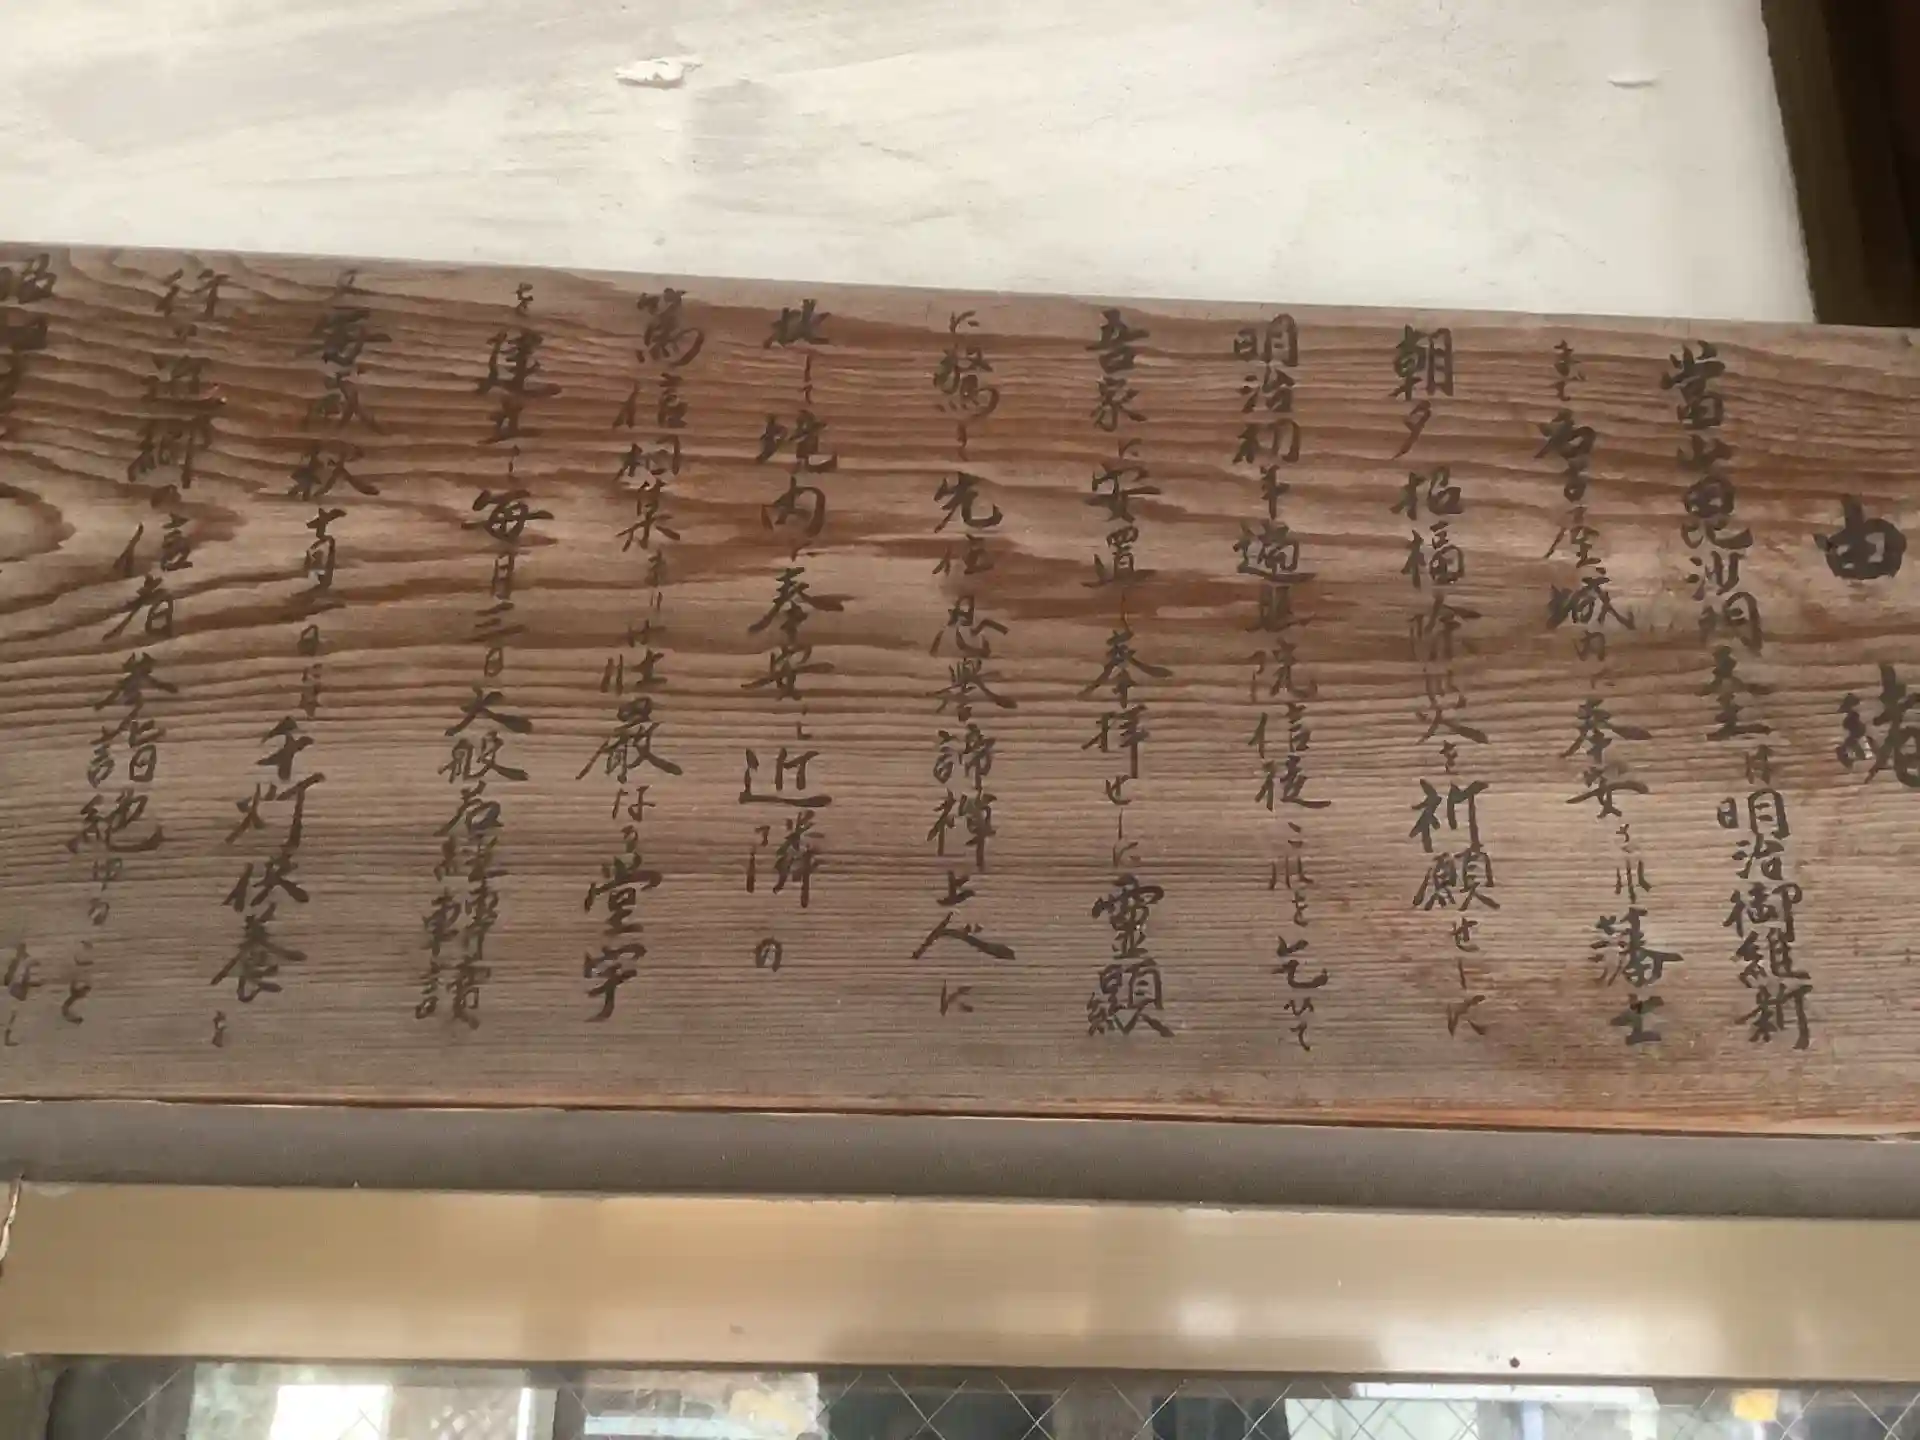 由緒
當山毘沙門天王は明治御維新
まで名古屋城内に奉安され藩士
朝夕招福除災を祈願せしに
明治初年遍照院信徒これを乞ひて
吾家に安置し奉拝せしに靈顯
に驚き先住忍譽諦禅上人に
して境内に奉安し近隣の
篤信相集まりは壮嚴なる堂宇
を建立し毎月三日大般若經轉讀
又毎歳秋十月一日には千灯供養を
行い近郷の信者参詣絶ゆること
なし